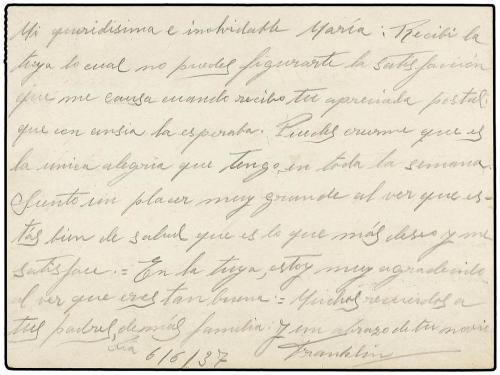 Mi queridisima e inolvidable María: Recibi la
tuya lo cual no puedes figurarte la satisfacción
que me causa cuando recibo tu apreciada postal.
que con ansia la esperaba. Puedes creerme que es
la unica alegria que tengo, en toda la semana.
Siento un placer muy grande al ver que es-
tas bien de salud que es lo que más deseo y me
satisface. = En la tuya, estoy muy agradecido
al ver que eres tan buena. = Muchos recuerdos a
tus padres, demás familia. Y un abrazo de tu novio
dia 6/6/37 Franklin